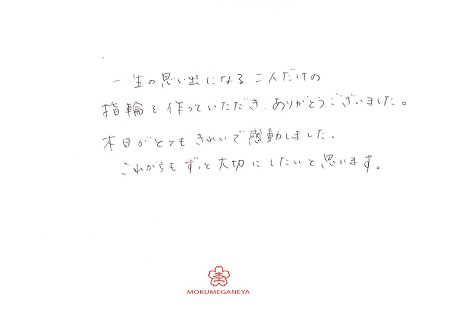 一生の思い出になる 二人だけの
指輪を作っていただき、ありがとうございました。
木目がとてもきれいで感動しました。
これからもずっと大切にしたいと思います。
MOKUMEGANEYA